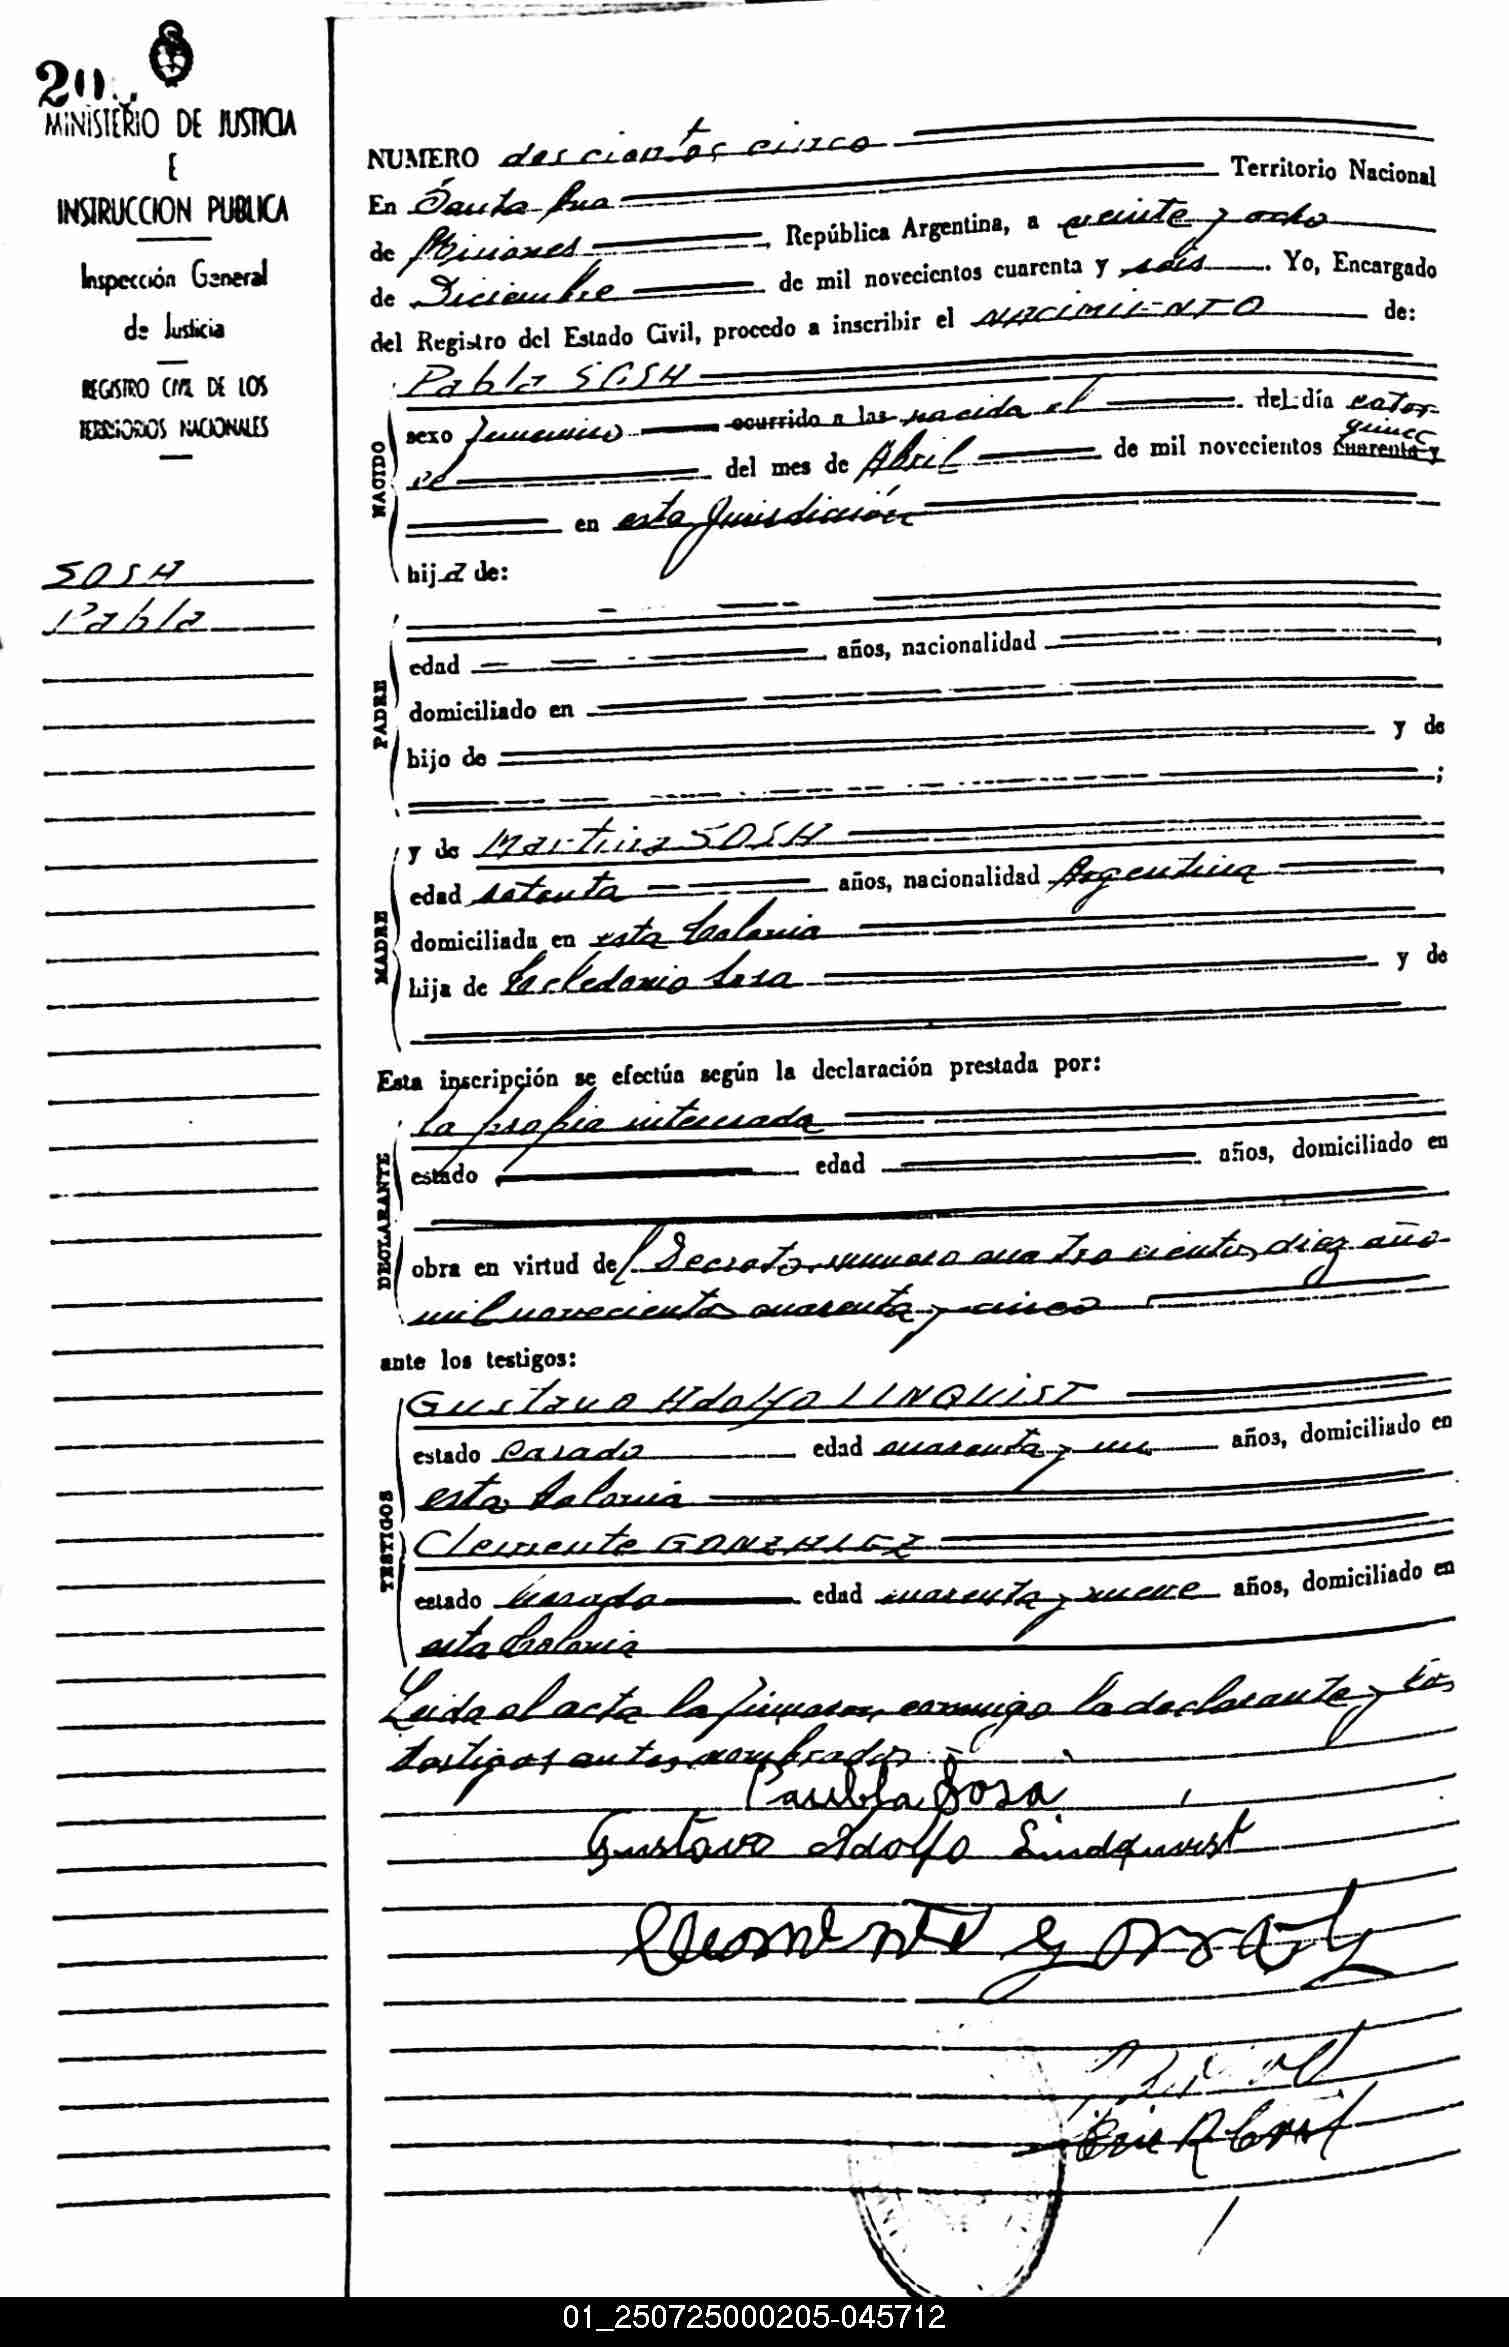 20
MINISTERIO DE JUSTICIA
E
INSTRUCCION PUBLICA
Inspección General
de Justicia
REGISTRO CIVIL DE LOS
TERRITORIOS NACIONALES
SOSA
Pabla
NUMERO doscientos cinco
En Santa Ana Territorio Nacional
de Misiones, República Argentina, a veinte y ocho
de Diciembre de mil novecientos cuarenta y seis. Yo, Encargado
del Registro del Estado Civil, procedo a inscribir el NACIMIENTO de:
NACIDO
Pabla SOSA
sexo femenino ocurrido a las nacida el del día cator-
ce del mes de Abril de mil novecientos cuarenta y quince
en esta Jurisdicción
hija de:
PADRE
edad años, nacionalidad
domiciliado en
hijo de y de
;
MADRE
y de Martina SOSA
edad setenta años, nacionalidad Argentina
domiciliada en esta Colonia
hija de Celedonio Sosa y de
Esta inscripción se efectúa según la declaración prestada por:
DECLARANTE
la propia interesada
estado edad años, domiciliado en
obra en virtud del Decreto numero cuatro cientos diez año
mil novecientos cuarenta y cinco
ante los testigos:
TESTIGOS
Gustavo Adolfo LINQUIST
estado casado edad cuarenta y un años, domiciliado en
esta Colonia
Clemente GONZALEZ
estado Casado edad cuarenta y nueve años, domiciliado en
esta Colonia
Leida el acta la firmaron conmigo la declarante y los
testigos antes nombrados
Paubla Sosa
Gustavo Adolfo Lindquist
01_250725000205-045712